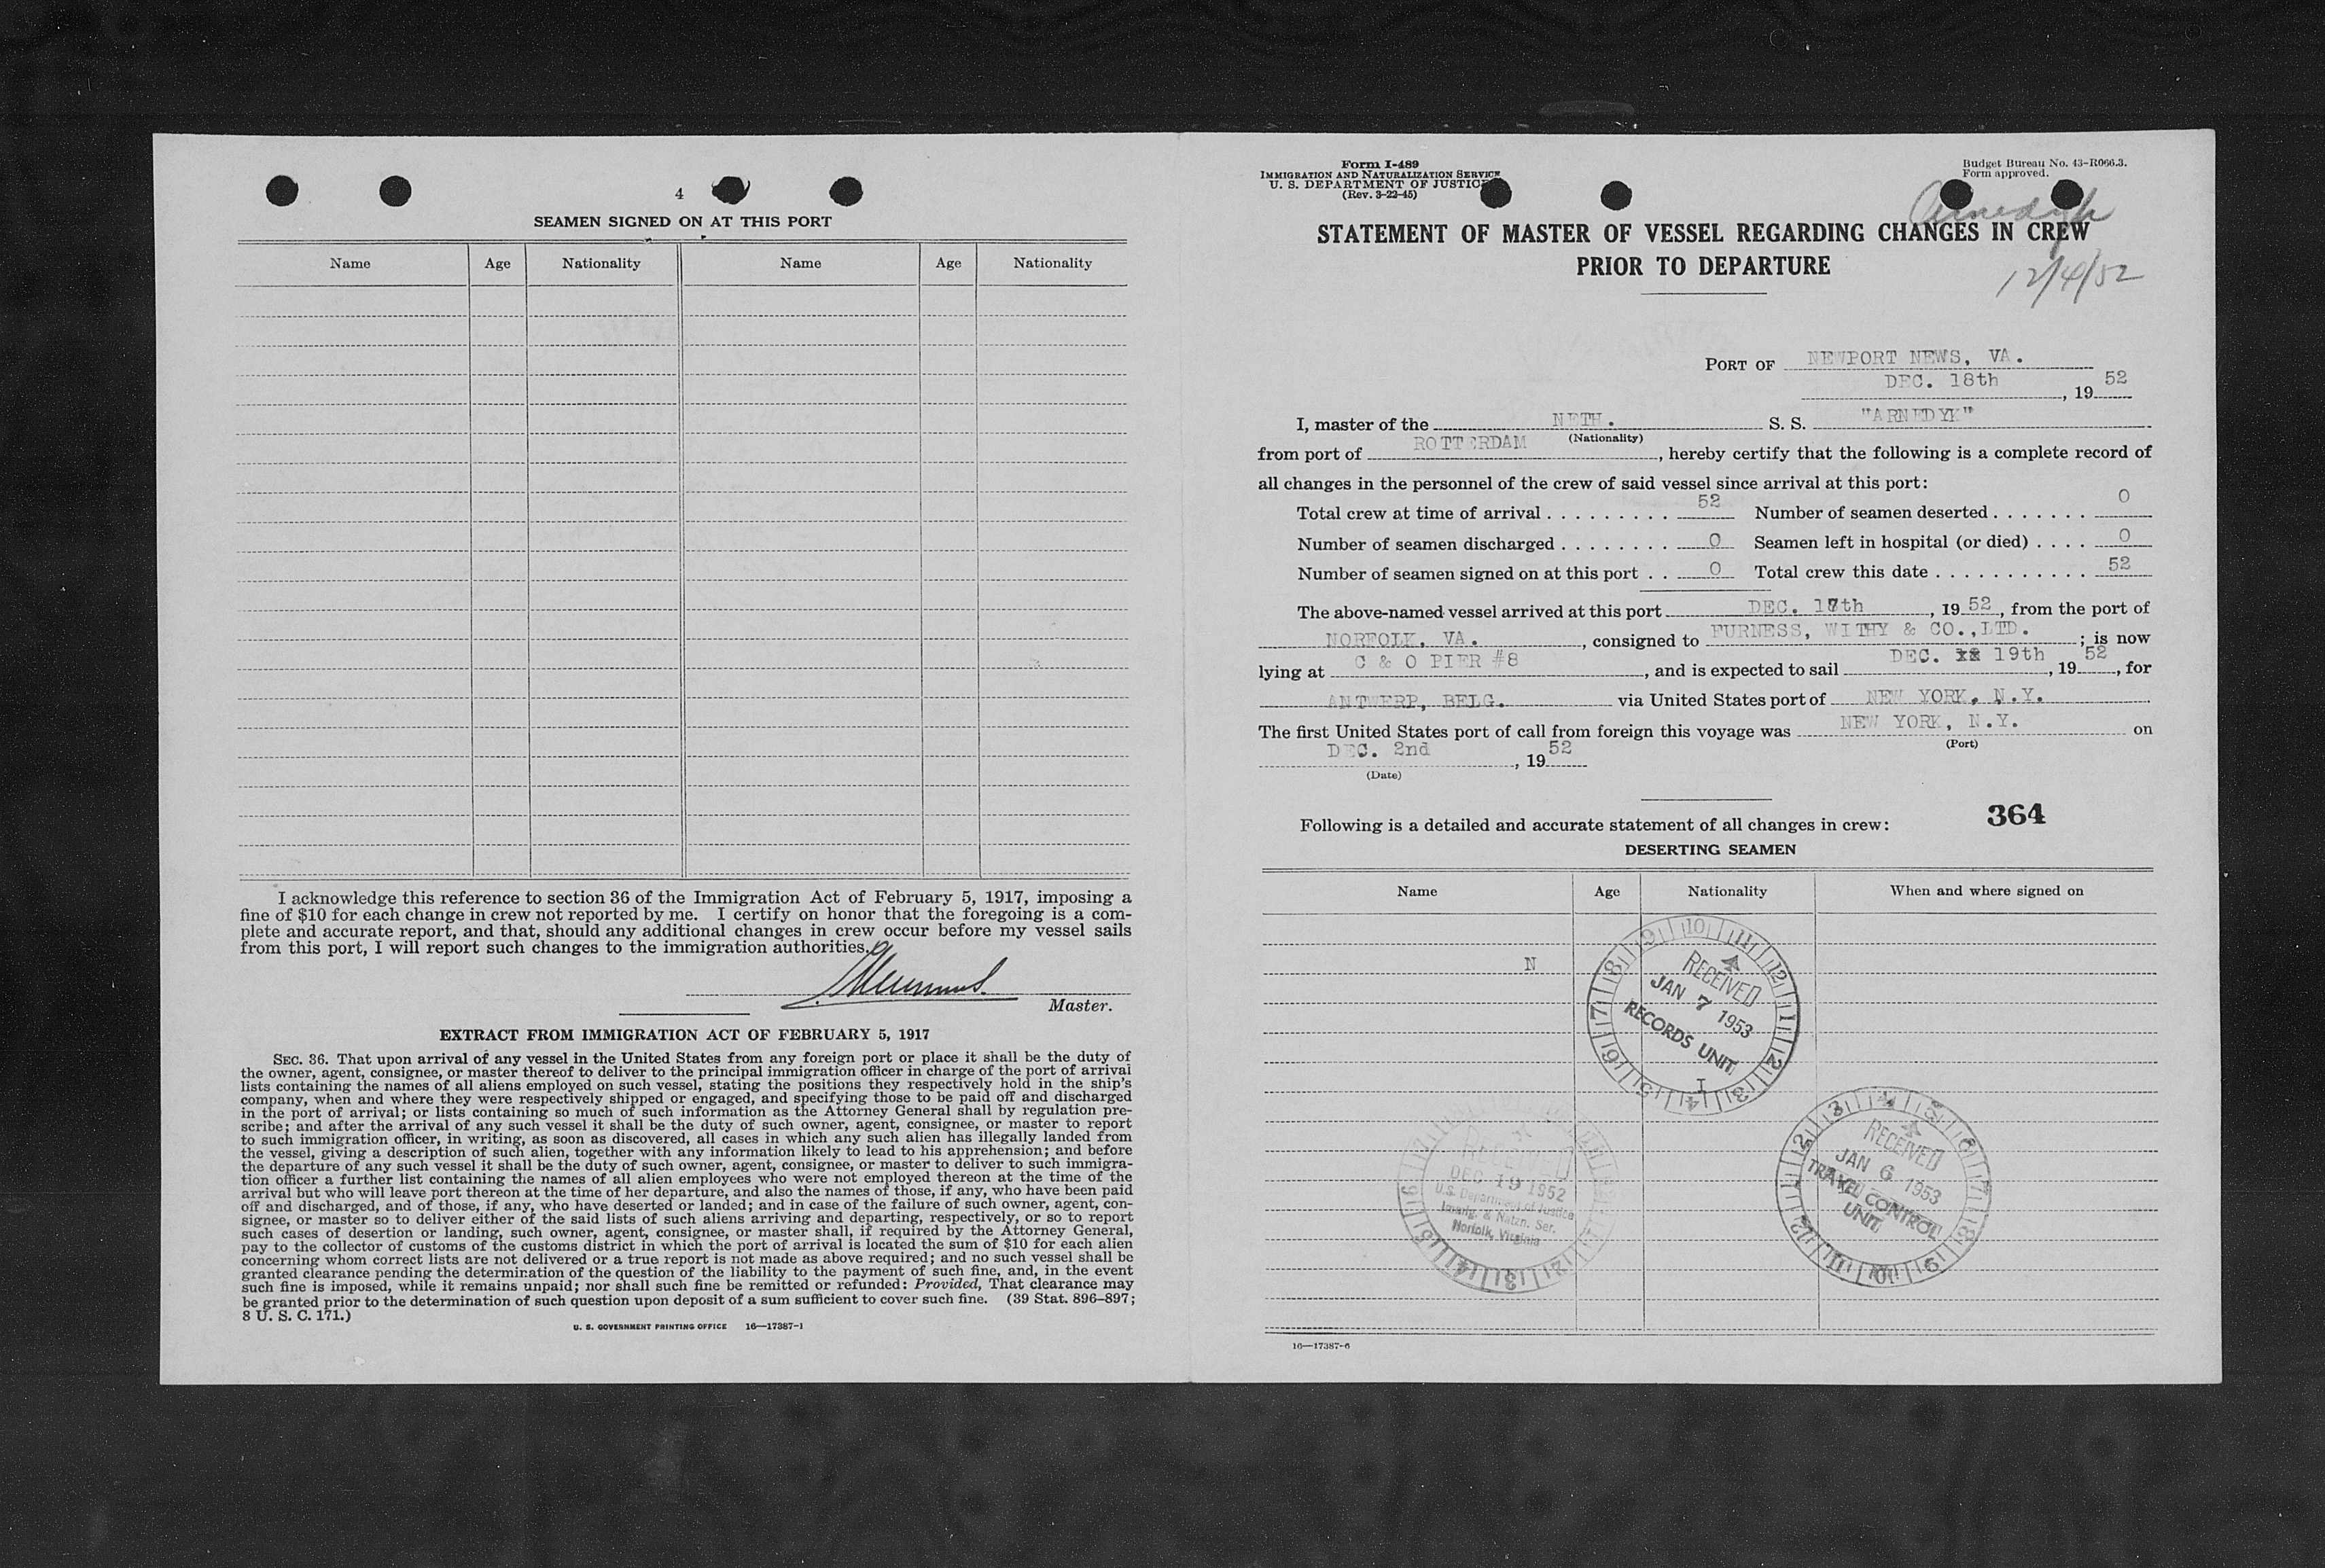 4
SEAMEN SIGNED ON AT THIS PORT
Name Age Nationality Name Age Nationality
I acknowledge this reference to section 36 of the Immigration Act of February 5, 1917, imposing a
fine of $10 for each change in crew not reported by me. I certify on honor that the foregoing is a com-
plete and accurate report, and that, should any additional changes in crew occur before my vessel sails
from this port, I will report such changes to the immigration authorities.
Master.
EXTRACT FROM IMMIGRATION ACT OF FEBRUARY 5, 1917
SEC. 36. That upon arrival of any vessel in the United States from any foreign port or place it shall be the duty of
the owner, agent, consignee, or master thereof to deliver to the principal immigration officer in charge of the port of arrival
lists containing the names of all aliens employed on such vessel, stating the positions they respectively hold in the ship's
company, when and where they were respectively shipped or engaged, and specifying those to be paid off and discharged
in the port of arrival; or lists containing so much of such information as the Attorney General shall by regulation pre-
scribe; and after the arrival of any such vessel it shall be the duty of such owner, agent, consignee, or master to report
to such immigration officer, in writing, as soon as discovered, all cases in which any such alien has illegally landed from
the vessel, giving a description of such alien, together with any information likely to lead to his apprehension; and before
the departure of any such vessel it shall be the duty of such owner, agent, consignee, or master to deliver to such immigra-
tion officer a further list containing the names of all alien employees who were not employed thereon at the time of the
arrival but who will leave port thereon at the time of her departure, and also the names of those, if any, who have been paid
off and discharged, and of those, if any, who have deserted or landed; and in case of the failure of such owner, agent, con-
signee, or master so to deliver either of the said lists of such aliens arriving and departing, respectively, or so to report
such cases of desertion or landing, such owner, agent, consignee, or master shall, if required by the Attorney General,
pay to the collector of customs of the customs district in which the port of arrival is located the sum of $10 for each alien
concerning whom correct lists are not delivered or a true report is not made as above required; and no such vessel shall be
granted clearance pending the determination of the question of the liability to the payment of such fine, and, in the event
such fine is imposed, while it remains unpaid; nor shall such fine be remitted or refunded: Provided, That clearance may
be granted prior to the determination of such question upon deposit of a sum sufficient to cover such fine. (39 Stat. 896–897;
8 U. S. C. 171.)
U. S. GOVERNMENT PRINTING OFFICE 16—17387-1
Form I-489
IMMIGRATION AND NATURALIZATION SERVICE
U. S. DEPARTMENT OF JUSTICE
(Rev. 3-22-45)
Budget Bureau No. 43-R066.3.
Form approved.
Arnedyk
STATEMENT OF MASTER OF VESSEL REGARDING CHANGES IN CREW
PRIOR TO DEPARTURE
12/4/52
PORT OF NEWPORT NEWS, VA.
DEC. 18th, 19 52
I, master of the NETH. S. S. "ARNEDYK"
(Nationality)
from port of ROTTERDAM, hereby certify that the following is a complete record of
all changes in the personnel of the crew of said vessel since arrival at this port:
Total crew at time of arrival . . . . . . . . . 52 Number of seamen deserted . . . . . . . 0
Number of seamen discharged . . . . . . . . 0 Seamen left in hospital (or died) . . . . 0
Number of seamen signed on at this port . . 0 Total crew this date . . . . . . . . . . . 52
The above-named vessel arrived at this port DEC. 17th, 19 52, from the port of
NORFOLK, VA., consigned to FURNESS, WITHY & CO.,LTD.; is now
lying at C & O PIER #8, and is expected to sail DEC. xx 19th, 19 52, for
ANTWERP, BELG. via United States port of NEW YORK, N.Y.
The first United States port of call from foreign this voyage was NEW YORK, N.Y. on
(Port)
DEC. 2nd, 19 52
(Date)
364
Following is a detailed and accurate statement of all changes in crew:
DESERTING SEAMEN
Name Age Nationality When and where signed on
N
RECEIVED
JAN 7 1953
RECORDS UNIT
I
RECEIVED
DEC 19 1952
U.S. Department of Justice
Immig. & Natzn. Ser.
Norfolk, Virginia
RECEIVED
JAN 6 1953
TRAVEL CONTROL
UNIT
16—17387-6